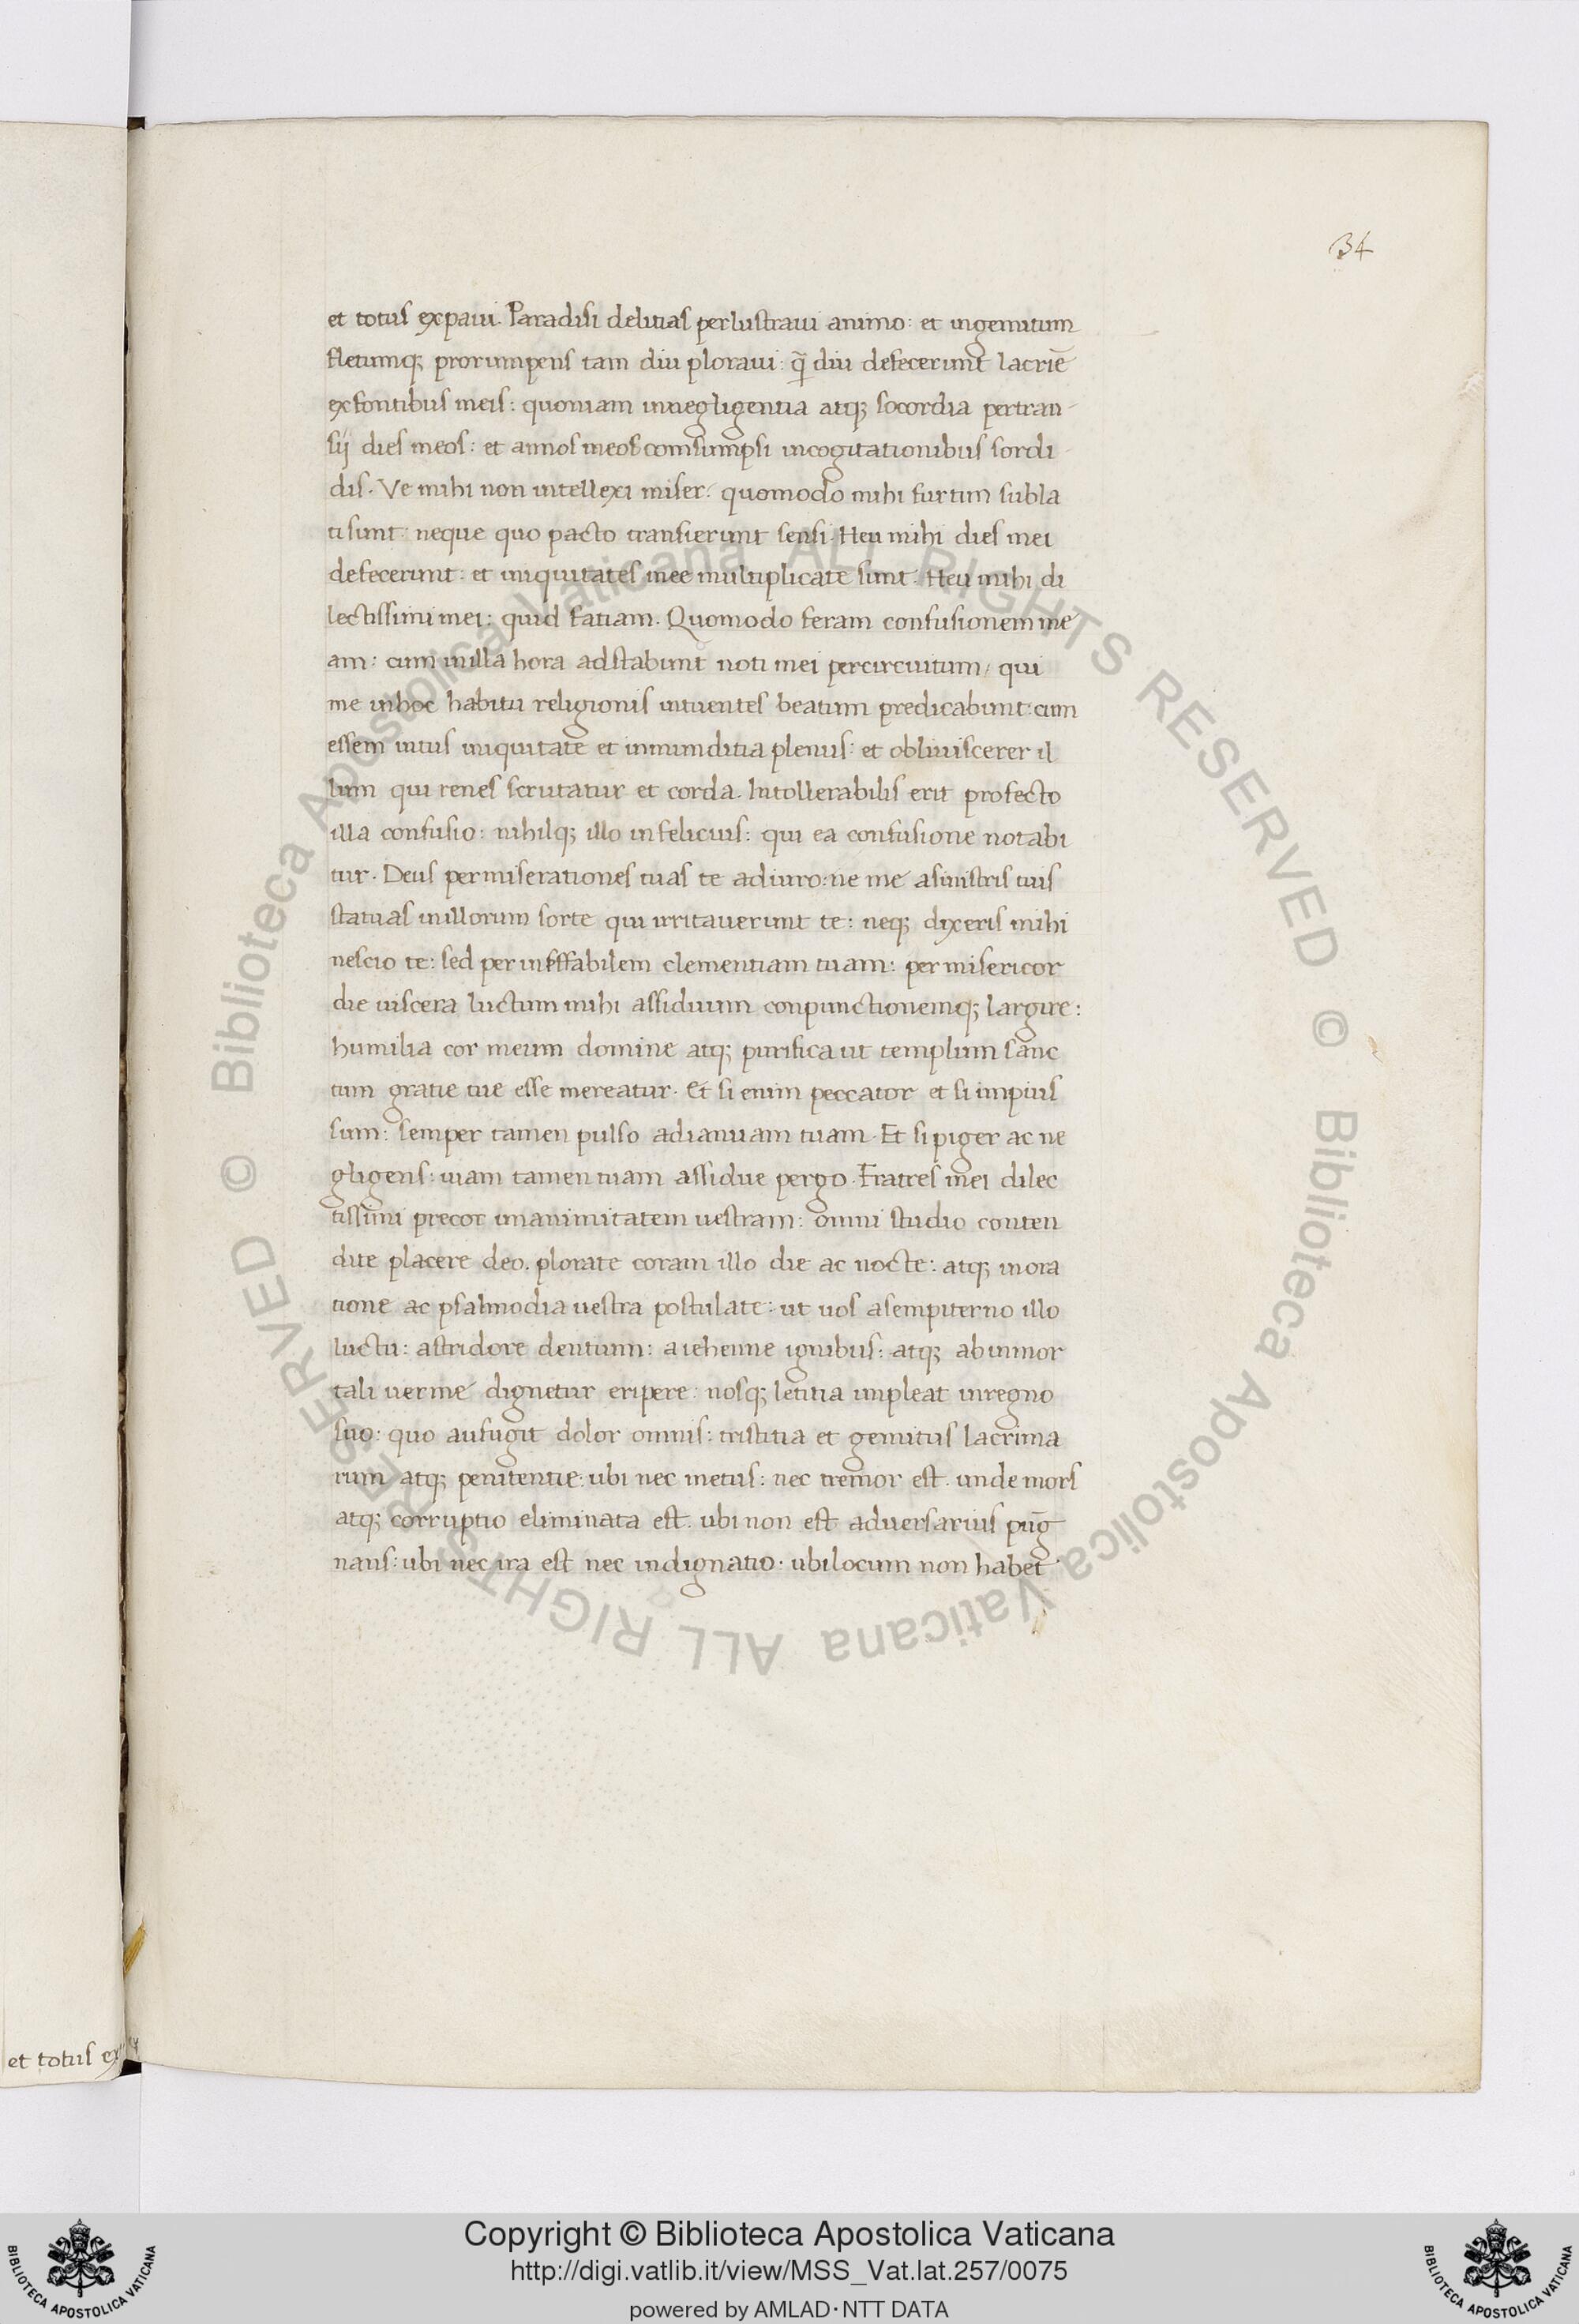 34
et totus expaui. Paradisi delitias perlustraui animo: et ingemitum
fletumq; prorumpens tam diu ploraui: q̄ diu defecerunt lacrie̅
exfontibus meis: quoniam innegligentia atq; socordia pertran-
sij dies meos: et annos meos comsumpsi incogitationibus sordi-
dis. Ve mihi non intellexi miser: quomodo mihi furtim subla
ti sunt: neque quo pacto transierunt sensi. Heu mihi dies mei
defecerunt: et iniquitates mee multiplicate sunt. Heu mihi di
lectissimi mei: quid fatiam. Quomodo feram confusionem me
am: cum inilla hora adstabunt noti mei percircuitum, qui
me inhoc habitu religionis intuentes beatum predicabunt: cum
essem intus iniquitate et inmunditia plenus: et obliuiscerer il
lum qui renes scrutatur et corda. Intollerabilis erit profecto
illa confusio: nihilq; illo infelicius: qui ea confusione notabi
tur. Deus permiserationes tuas te adiuro: ne me asinistris tuis
statuas inillorum sorte qui irritauerunt te: neq; dixeris mihi
nescio te: sed per ineffabilem clementiam tuam: per misericor
die uiscera luctum mihi assiduum conpunctionemq; largire:
humilia cor meum domine atq; purifica ut templum sanc
tum gratie tue esse mereatur. Et si enim peccator et si impius
sum: semper tamen pulso adianuam tuam. Et si piger ac ne
gligens: uiam tamen tuam assidue pergo. Fratres mei dilec
tissimi precor unanimitatem uestram: omni studio conten
dite placere deo. plorate coram illo die ac nocte: atq; inora
tione ac psalmodia uestra postulate: ut uos asempiterno illo
luctu: astridore dentium: a iehenne ignibus: atq; abinmor
tali uerme dignetur eripere: nosq; letitia impleat inregno
suo: quo aufugit dolor omnis: tristitia et gemitus lacrima
rum atq; penitentie: ubi nec metus: nec tremor est. unde mors
atq; corruptio eliminata est. ubi non est aduersarius pūg
nans: ubi nec ira est nec indignatio. ubi locum non habet
et totus ex
© Biblioteca Apostolica Vaticana ALL RIGHTS RESERVED © Biblioteca Apostolica Vaticana ALL RIGHTS RESERVED
Copyright © Biblioteca Apostolica Vaticana
http://digi.vatlib.it/view/MSS_Vat.lat.257/0075
powered by AMLAD·NTT DATA
BIBLIOTECA APOSTOLICA VATICANA
BIBLIOTECA APOSTOLICA VATICANA